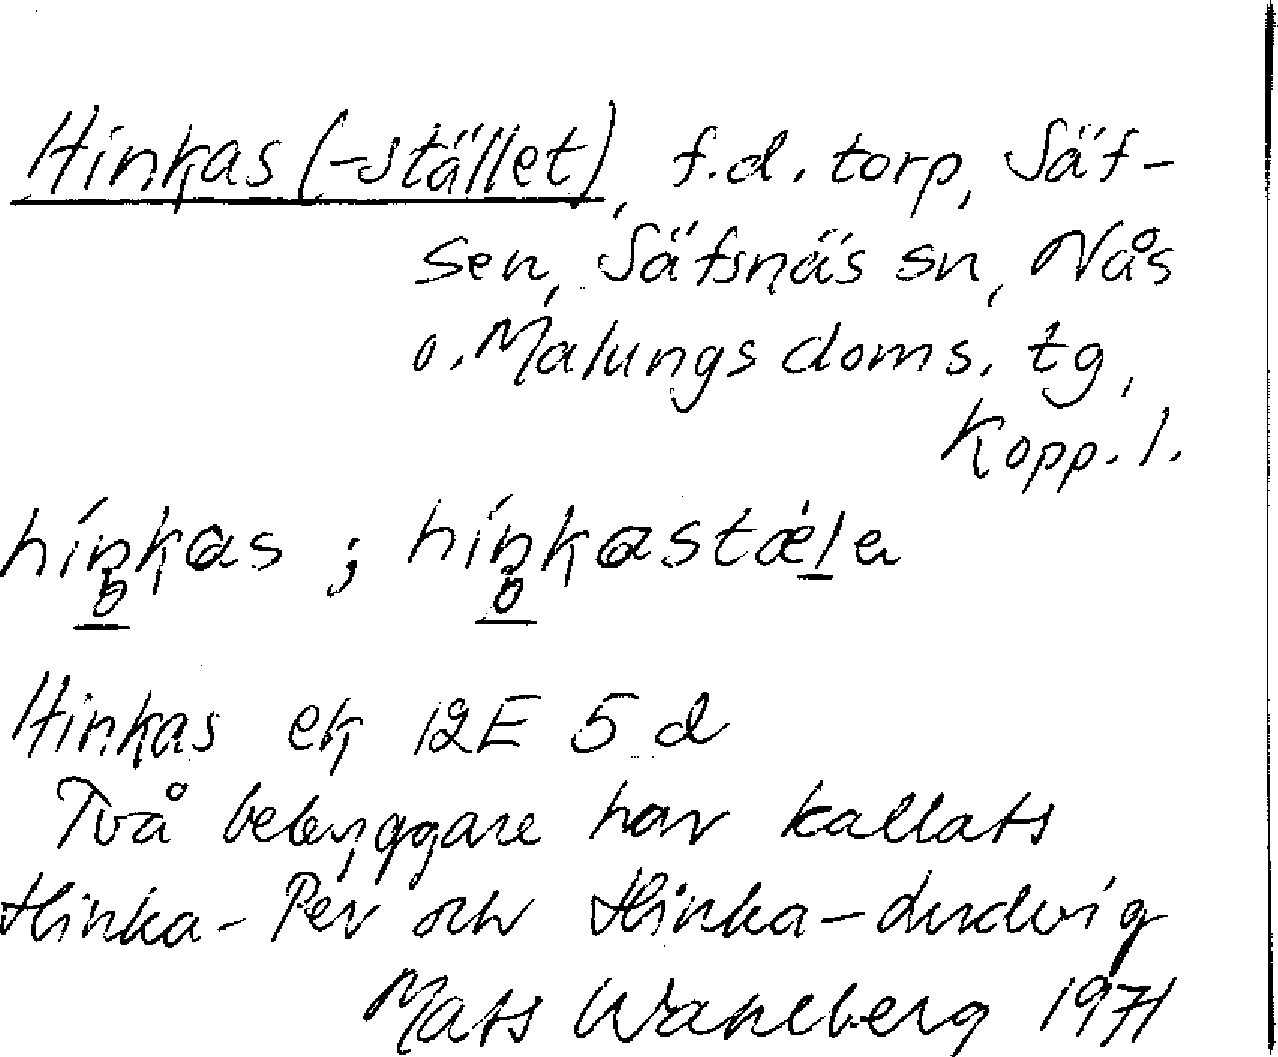 Hinkas (-stället), f.d. torp, Säf-
sen, Säfsnäs sn, Nås
o. Malungs doms. tg,
Kopp. l.
híŋkas ; híŋkastæ̀la
Hinkas ek 12E 5 d
Två bebyggare har kallats
Hinka-Per och Hinka-Ludvig
Mats Wahlberg 1971